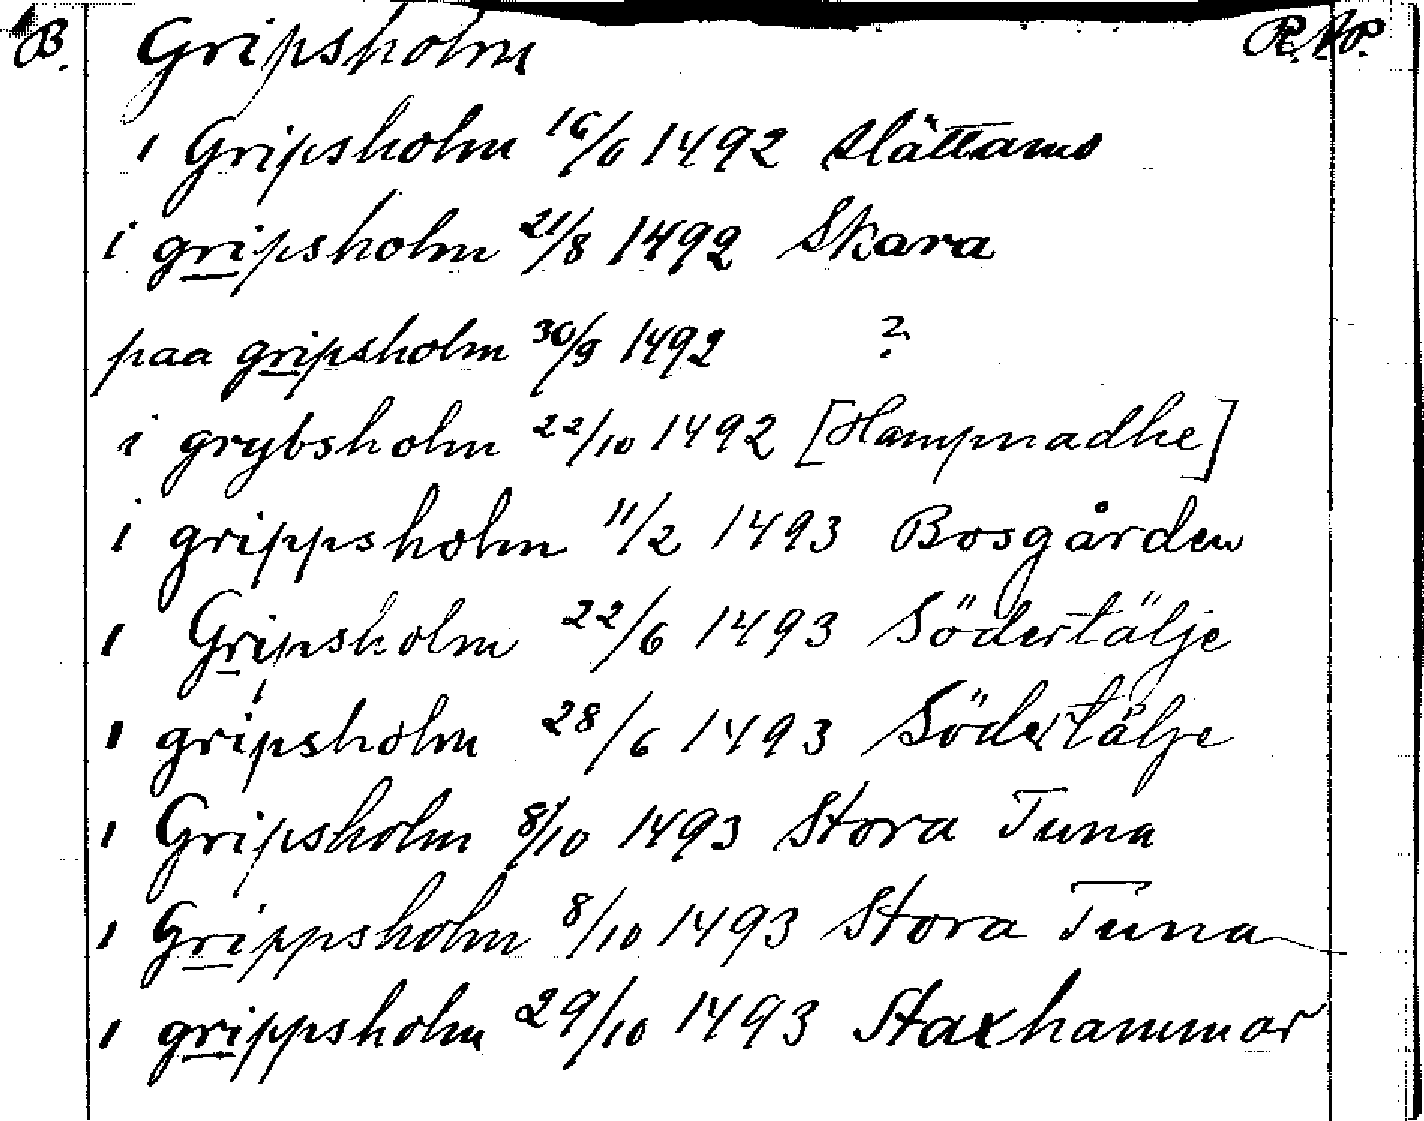 B. Gripsholm R.A.P.
i Gripsholm 16/6 1492 Slättans
i gripsholm 21/8 1492 Skara
paa gripsholm 30/9 1492 ?
i grybsholm 22/10 1492 [Hampnadhe]
i grippsholm 11/2 1493 Bosgården
i Gripsholm 22/6 1493 Södertälje
i gripsholm 28/6 1493 Södertälje
i Gripsholm 8/10 1493 Stora Tuna
i Grippsholm 8/10 1493 Stora Tuna
i grippsholm 29/10 1493 Staxhammar